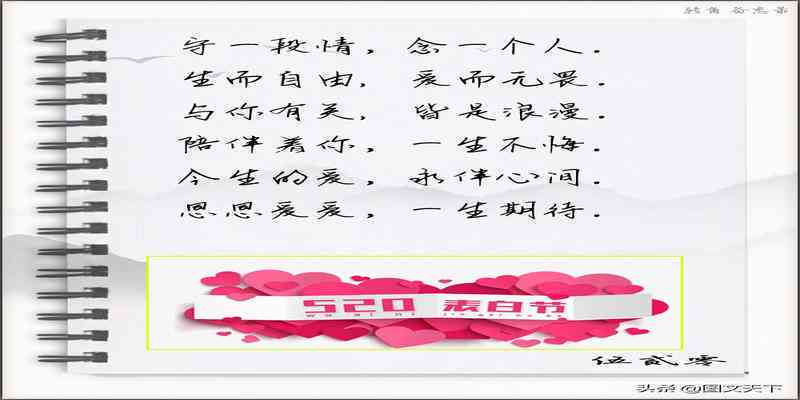 转角 备忘录
守一段情，念一个人。
生而自由，爱而无畏。
与你有关，皆是浪漫。
陪伴着你，一生不悔。
今生的爱，永伴心间。
恩恩爱爱，一生期待。
520 表白节
伍贰零
头条 @图文天下